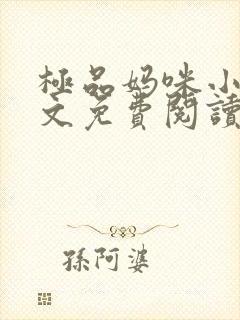 極品妈咪小
文免費閱讀
孫阿婆